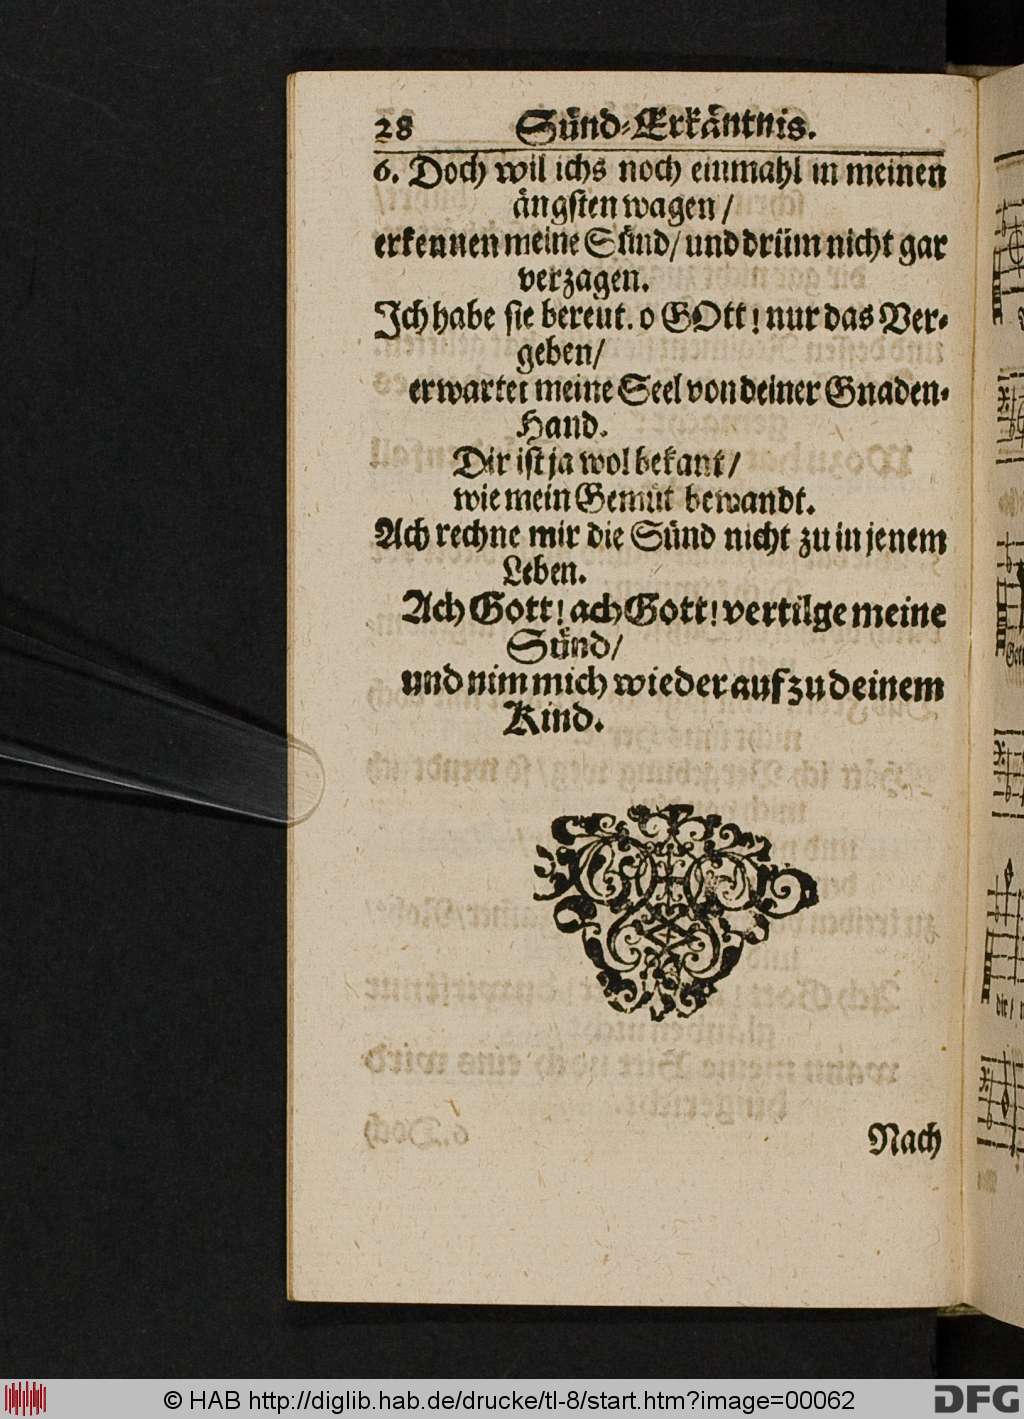 28 Sünd-Erkäntnis.
6. Doch wil ichs noch einmahl in meinen
ängsten wagen /
erkennen meine Sünd / und drüm nicht gar
verzagen.
Ich habe sie bereut. o GOtt! nur das Ver-
geben /
erwartet meine Seel von deiner Gnaden-
Hand.
Dir ist ja wol bekant /
wie mein Gemüt bewandt.
Ach rechne mir die Sünd nicht zu in jenem
Leben.
Ach Gott! ach Gott! vertilge meine
Sünd /
und nim mich wieder auf zu deinem
Kind.
Nach
© HAB http://diglib.hab.de/drucke/tl-8/start.htm?image=00062
DFG